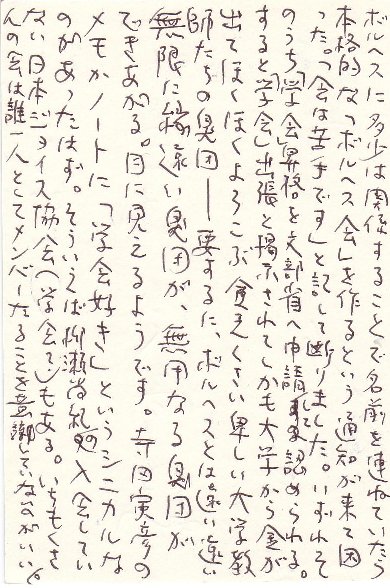 ボルヘスに多少は関係することで名前を連れていたら
本格的な「ボルヘス会」を作るという通知が来て困
った。「会は苦手です」と記して断りました。いずれそ
のうち「学会」昇格を文部省へ申請 認められる。
すると「学会」出張と掲示されてしかも大学から金が
出てほくほくよろこぶ貧乏くさい卑しい大学教
師たちの集団——要するに、ボルヘスとは遠い遠い
無限に縁遠い集団が、無用なる集団が
できあがる。目に見えるようです。寺田寅彦の
メモかノートに「学会好き」というシニカルな
のがあったはず。そういえば柳瀬尚紀 入会してい
ない日本ジョイス協会(学会で)もある。いちもくさ
んの会は誰一人としてメンバーたることを意識していないのがいい。